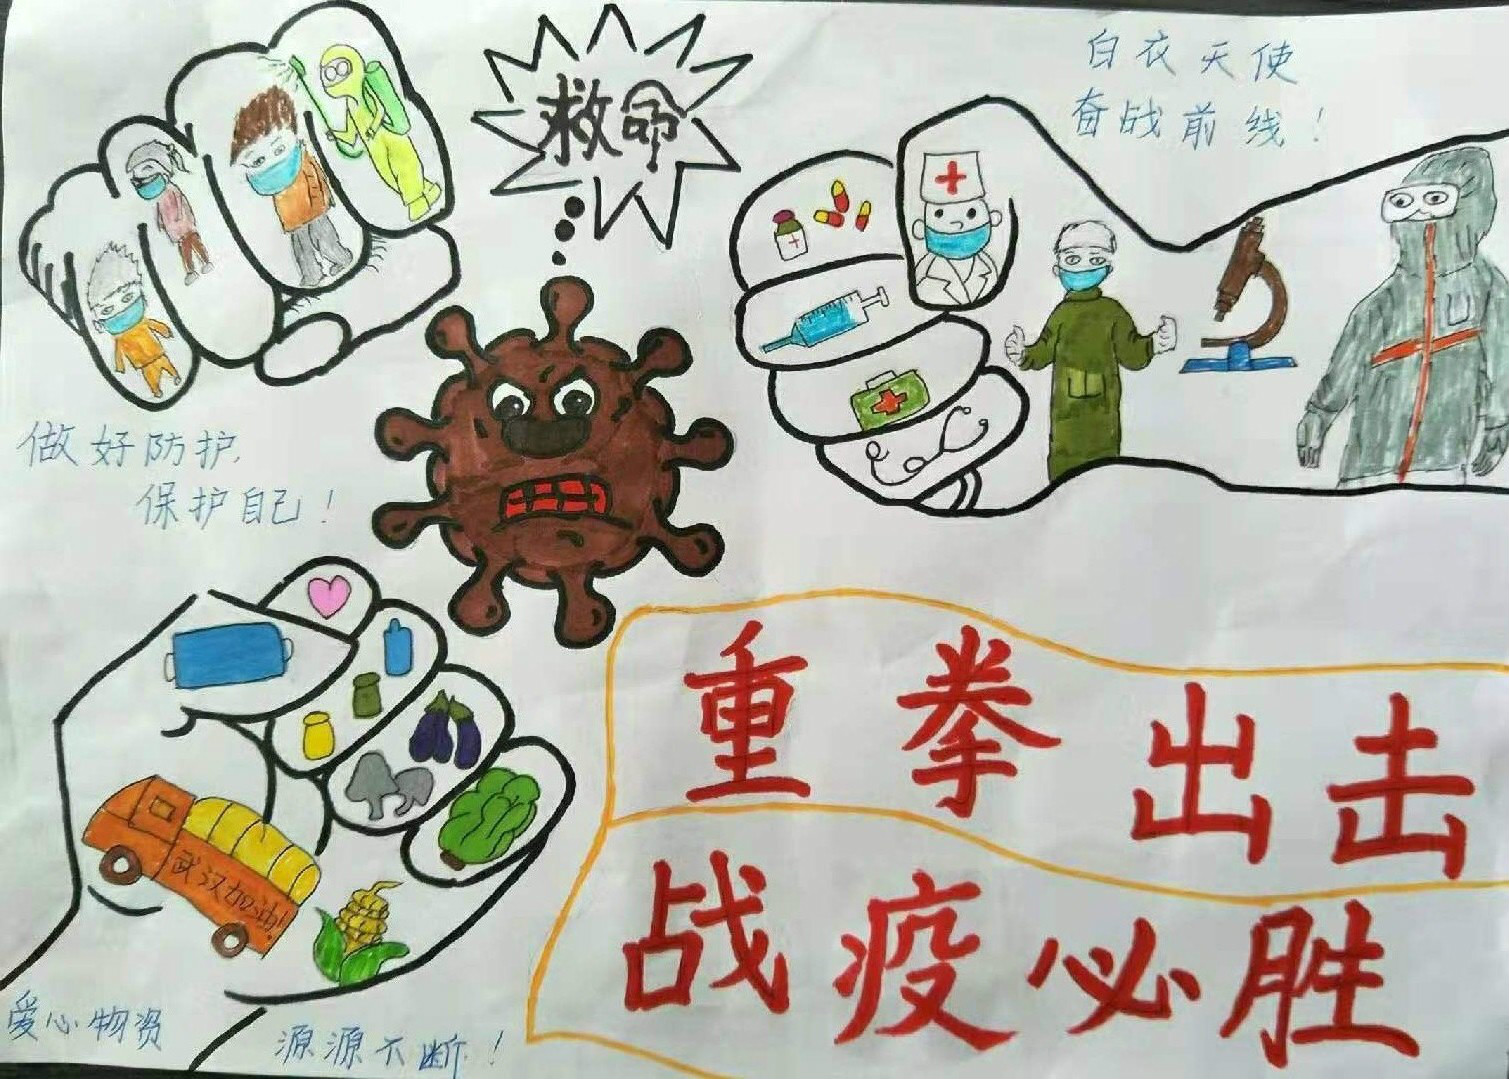 救命
白衣天使
奋战前线！
做好防护，
保护自己！
武汉加油！
爱心物资
源源不断！
重拳出击
战疫必胜